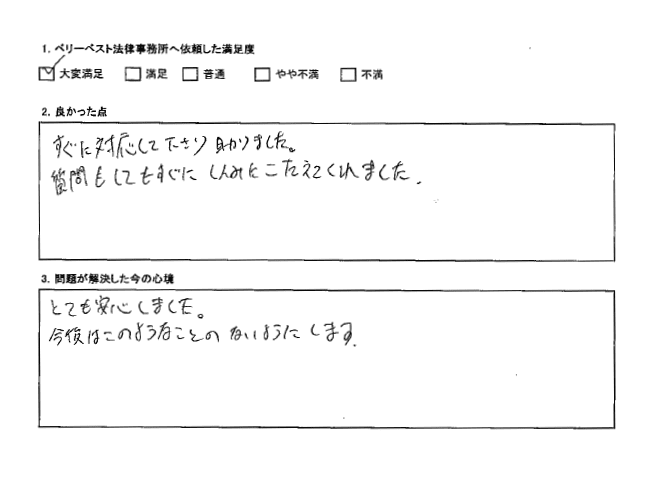 1. ベリーベスト法律事務所へ依頼した満足度
☑ 大変満足 □ 満足 □ 普通 □ やや不満 □ 不満
2. 良かった点
すぐに対応して下さり助かりました。
質問もしてもすぐにしんみにこたえてくれました.
3. 問題が解決した今の心境
とても安心しました。
今後はこのようなことのないようにします.